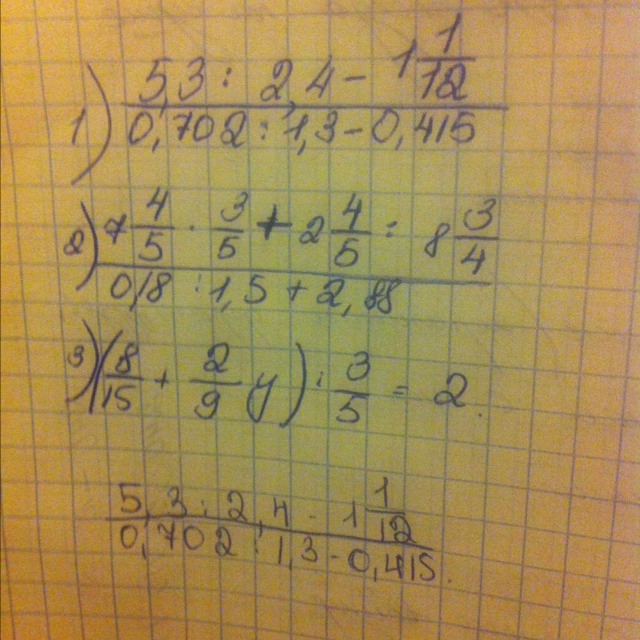 1) 5,3 : 2,4 - 1 1/12
0,702 : 1,3 - 0,415
2) x 4/5 · 3/5 + 2 4/5 = 8 3/4
0,18 : 1,5 + 2,88
3) (8/15 + 2/9 y) : 3/5 = 2
5,3 : 2,4 - 1 1/12
0,702 : 1,3 - 0,415